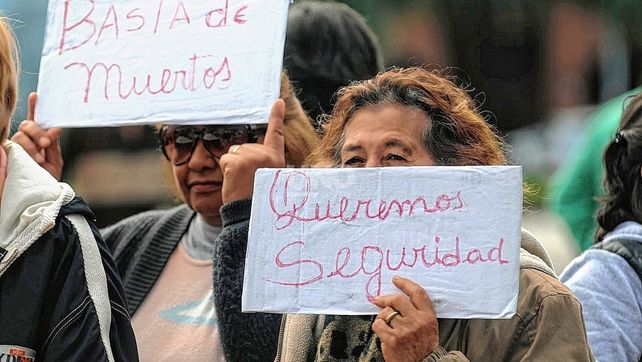 BASTA de
Muertos
Queremos
Seguridad